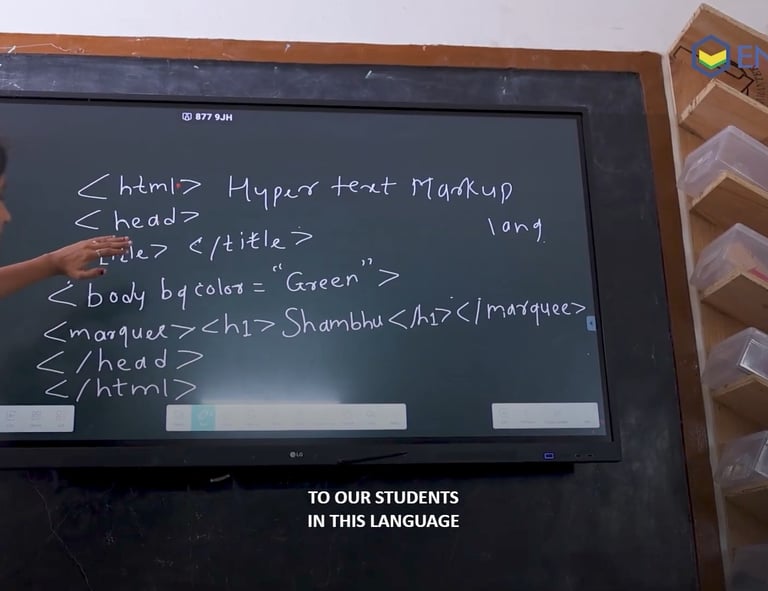 877 9JH
<html> Hyper text Markup
lang
<head>
</title>
<body bgcolor = "Green">
<marquee><h1> Shambhu </h1></marquee>
</head>
</html>
LG
TO OUR STUDENTS
IN THIS LANGUAGE